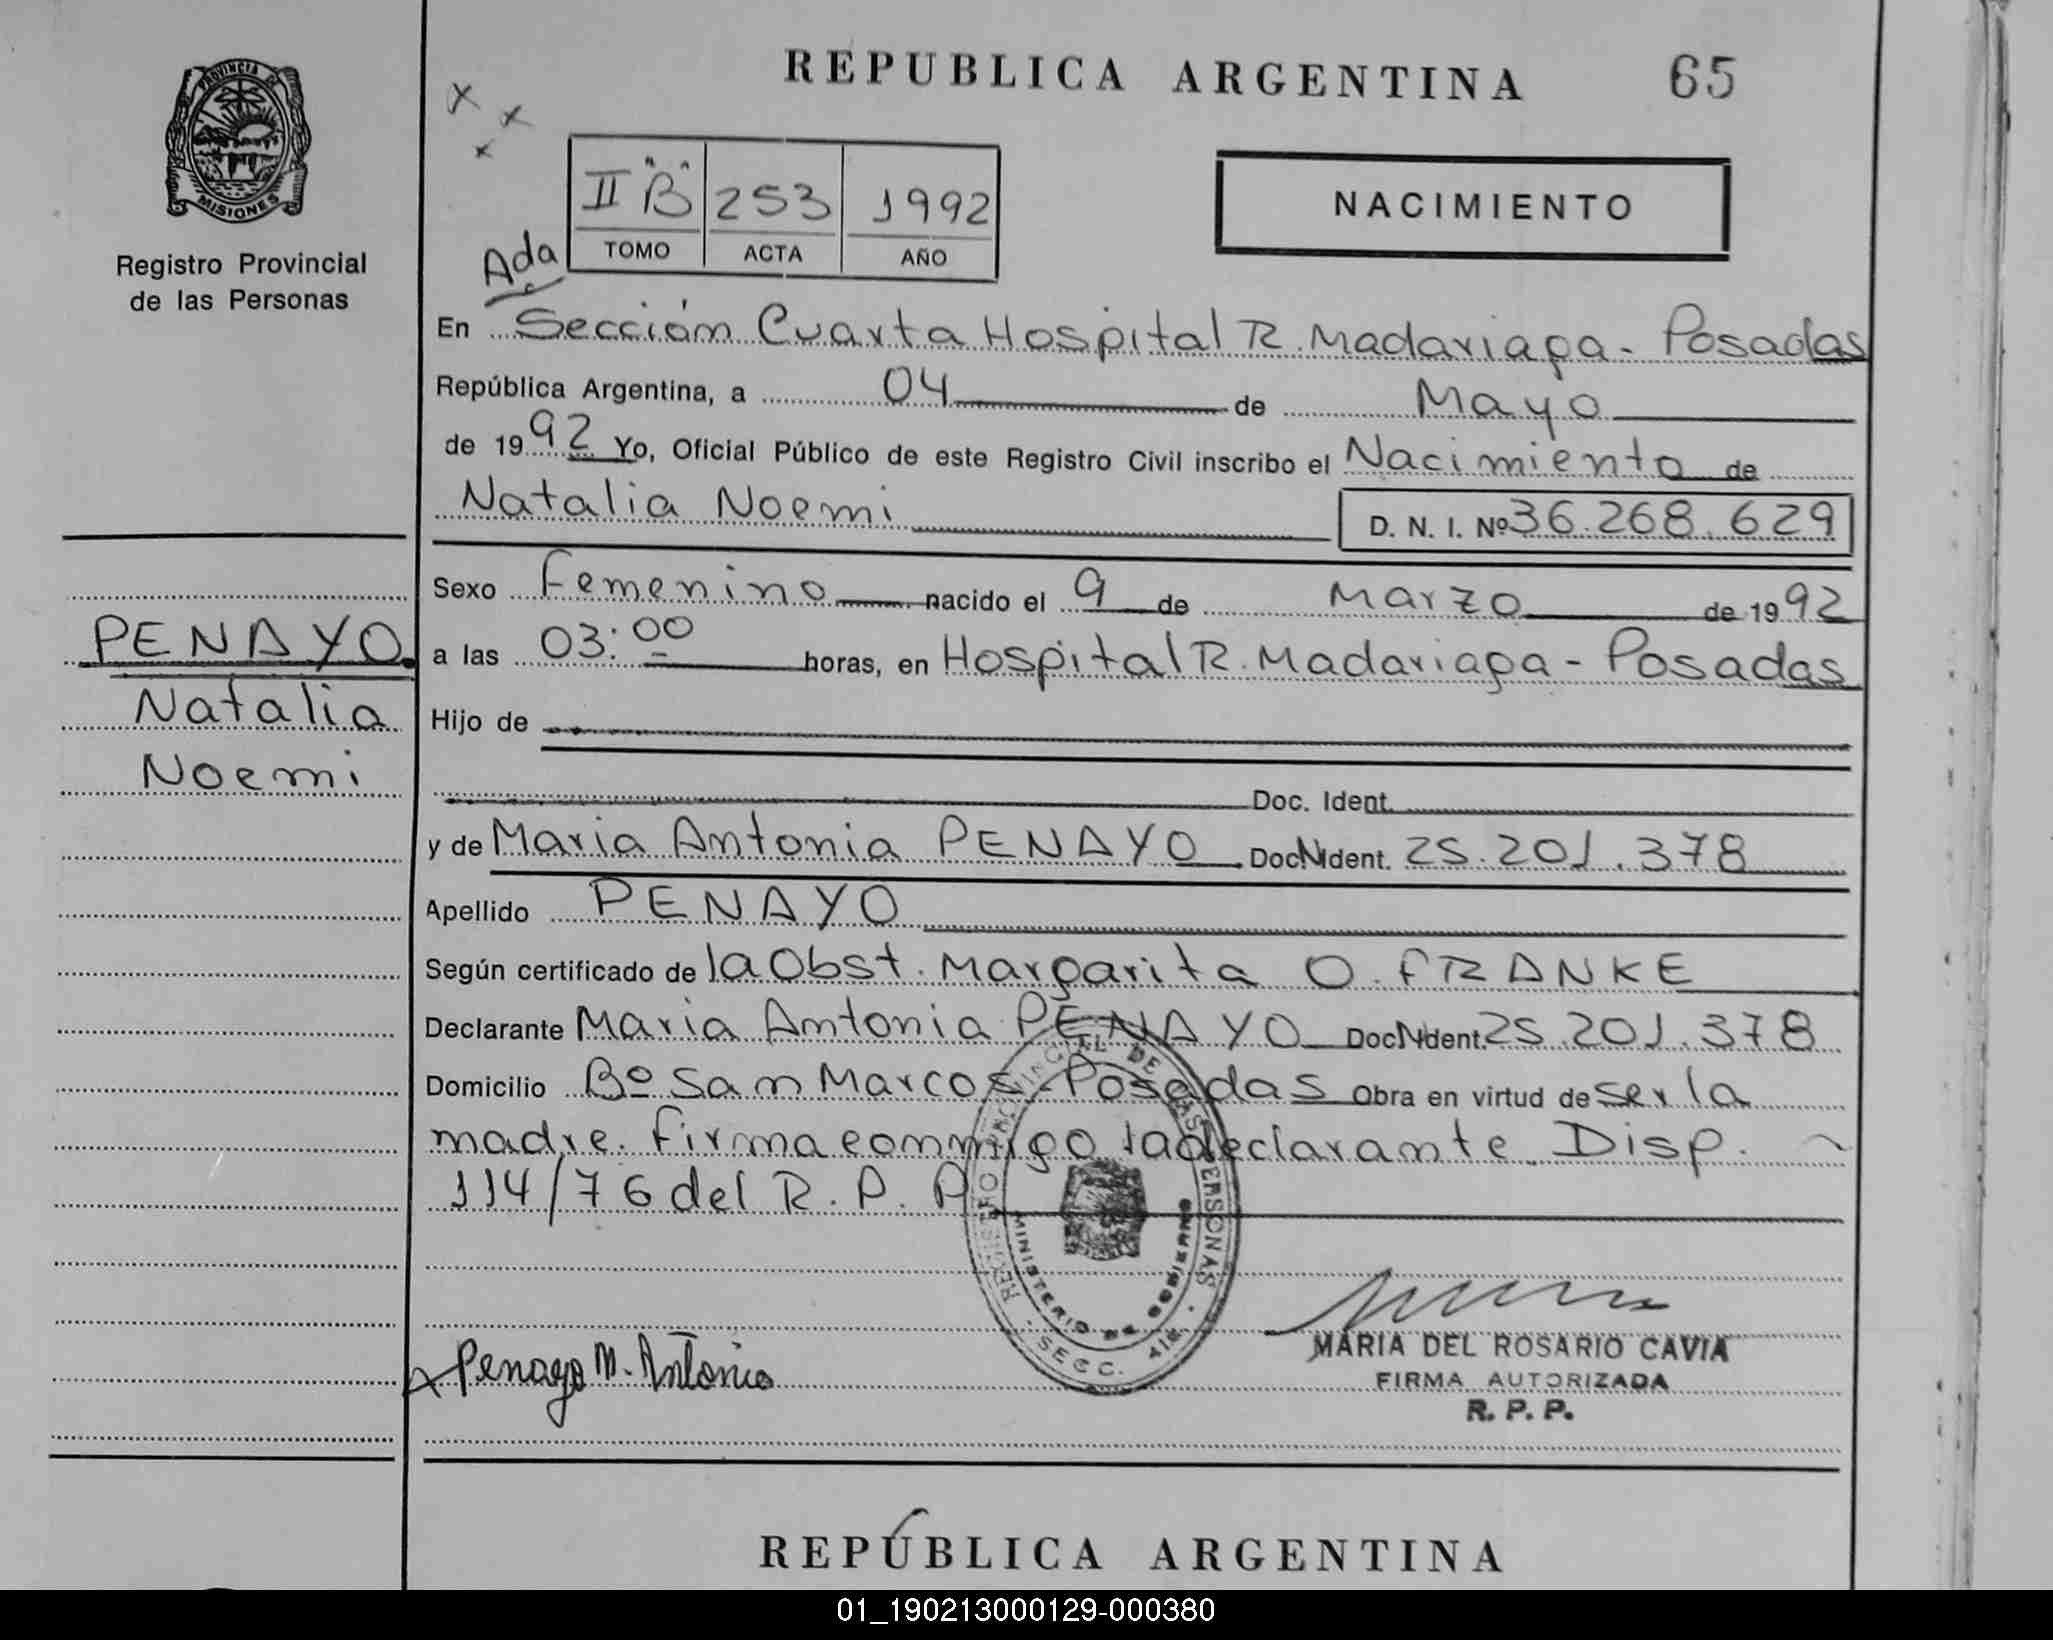 REPUBLICA ARGENTINA 65
PROVINCIA DE
MISIONES
Registro Provincial
de las Personas
II "B" 253 1992
TOMO ACTA AÑO
NACIMIENTO
Ada
En Sección Cuarta Hospital R. Madariaga - Posadas
República Argentina, a 04 de Mayo
de 1992 Yo, Oficial Público de este Registro Civil inscribo el Nacimiento de
Natalia Noemi D. N. I. Nº 36.268.629
Sexo Femenino nacido el 9 de Marzo de 1992
a las 03:00 horas, en Hospital R. Madariaga - Posadas
PENAYO
Natalia
Noemi
Hijo de
Doc. Ident.
y de Maria Antonia PENAYO Doc. Ident. 25.201.378
Apellido PENAYO
Según certificado de la Obst. Margarita O. FRANKE
Declarante Maria Antonia PENAYO Doc. Ident. 25.201.378
Domicilio Bº San Marcos - Posadas Obra en virtud de ser la
madre. Firma conmigo la declarante Disp.
114/76 del R. P. P
REGISTRO PROVINCIAL DE LAS PERSONAS
MINISTERIO DE GOBIERNO
SECC. 4ta.
Penayo M. Antonia
MARIA DEL ROSARIO CAVIA
FIRMA AUTORIZADA
R. P. P.
REPÚBLICA ARGENTINA
01_190213000129-000380